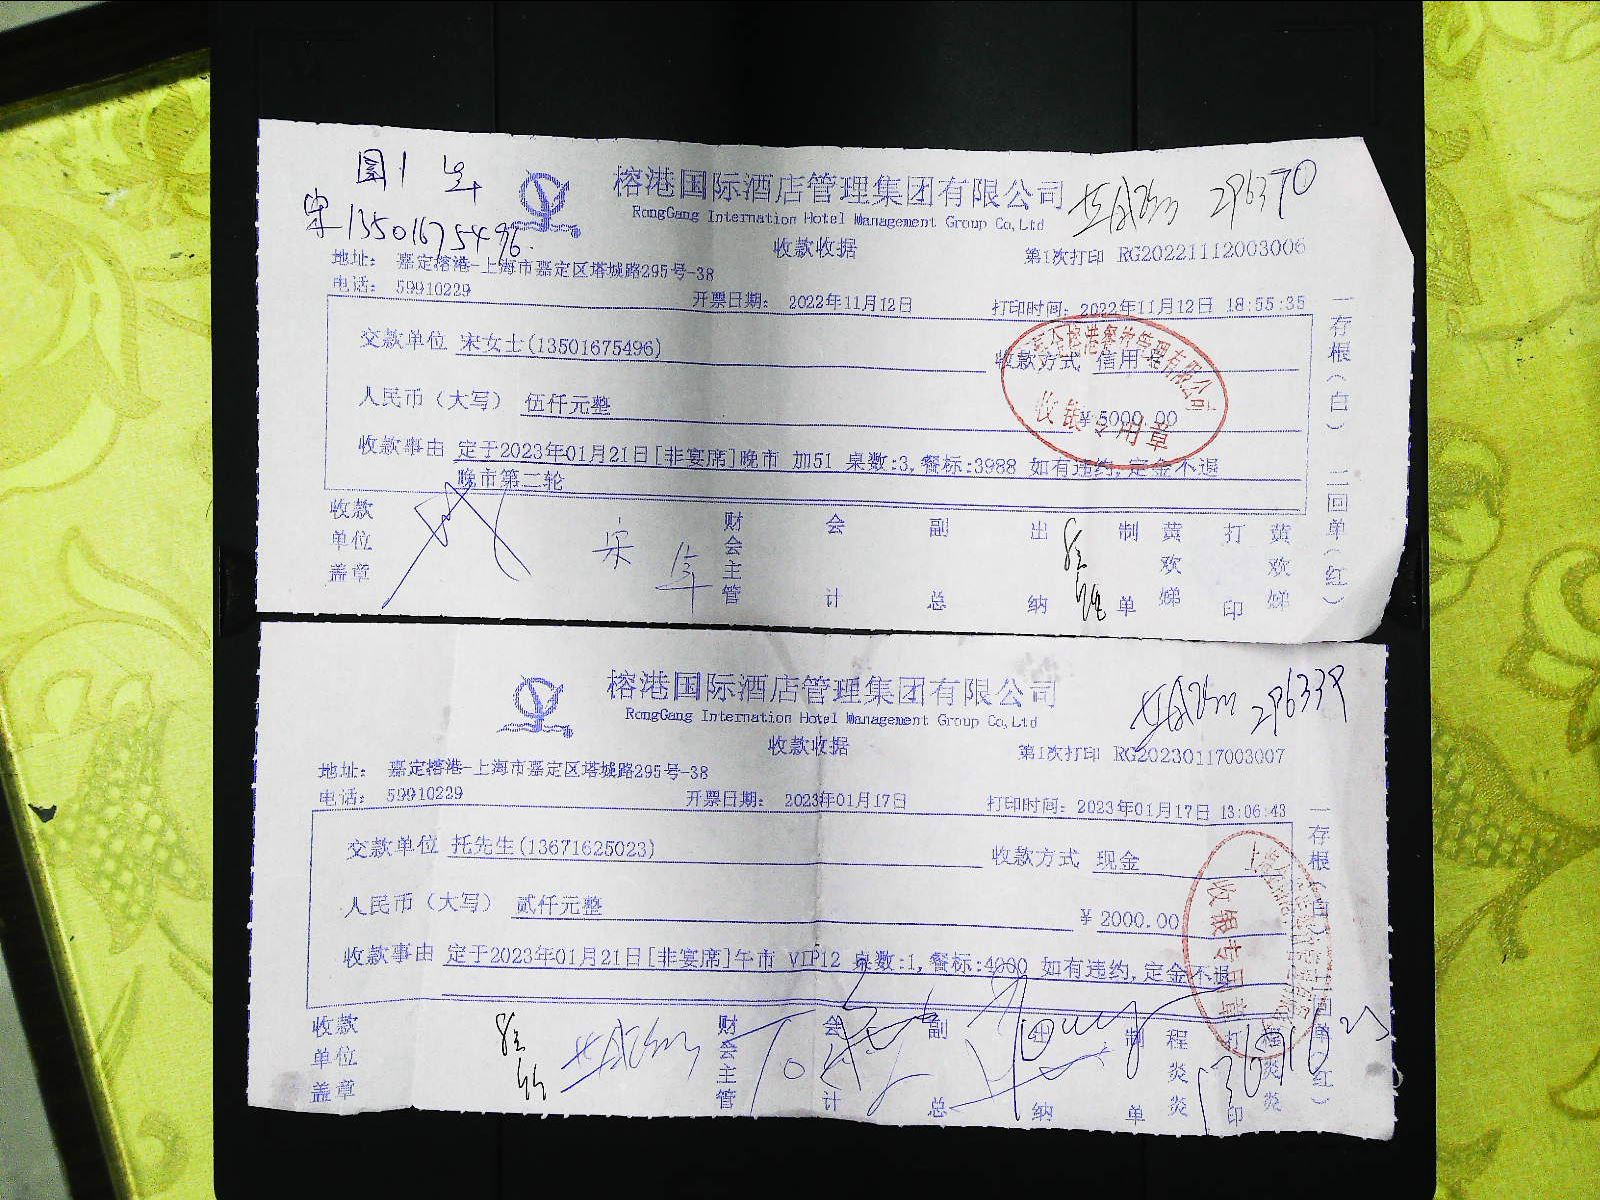 宋13501675496.
榕港国际酒店管理集团有限公司
296370
RongGang Internation Hotel Management Group Co,Ltd
收款收据
第1次打印 RG20221112003006
地址: 嘉定榕港-上海市嘉定区塔城路295号-38
电话: 59910229
开票日期: 2022年11月12日
打印时间: 2022年11月12日 18:55:35
交款单位 宋女士(13501675496)
收款方式 信用
人民币(大写) 伍仟元整
¥ 5000.00
收款事由 定于2023年01月21日[非宴席]晚市 加51 桌数:3,餐标:3988 如有违约,定金不退
晚市第二轮
收银专用章
收款单位盖章
宋
财会主管
会计
副总
出纳
制单
黄欢娣
打印
黄欢娣
一存根(白) 二回单(红)
榕港国际酒店管理集团有限公司
296339
RongGang Internation Hotel Management Group Co,Ltd
收款收据
第1次打印 RG20230117003007
地址: 嘉定榕港-上海市嘉定区塔城路295号-38
电话: 59910229
开票日期: 2023年01月17日
打印时间: 2023年01月17日 13:06:43
交款单位 托先生(13671625023)
收款方式 现金
人民币(大写) 贰仟元整
¥ 2000.00
收款事由 定于2023年01月21日[非宴席]午市 VIP12 桌数:1,餐标:4000 如有违约,定金不退
收银专用章
收款单位盖章
财会主管
会计
副总
出纳
制单
程炎炎
打印
程炎炎
一存根(白) 二回单(红)